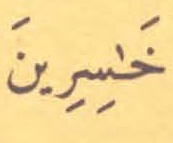 خَٰسِرِينَ